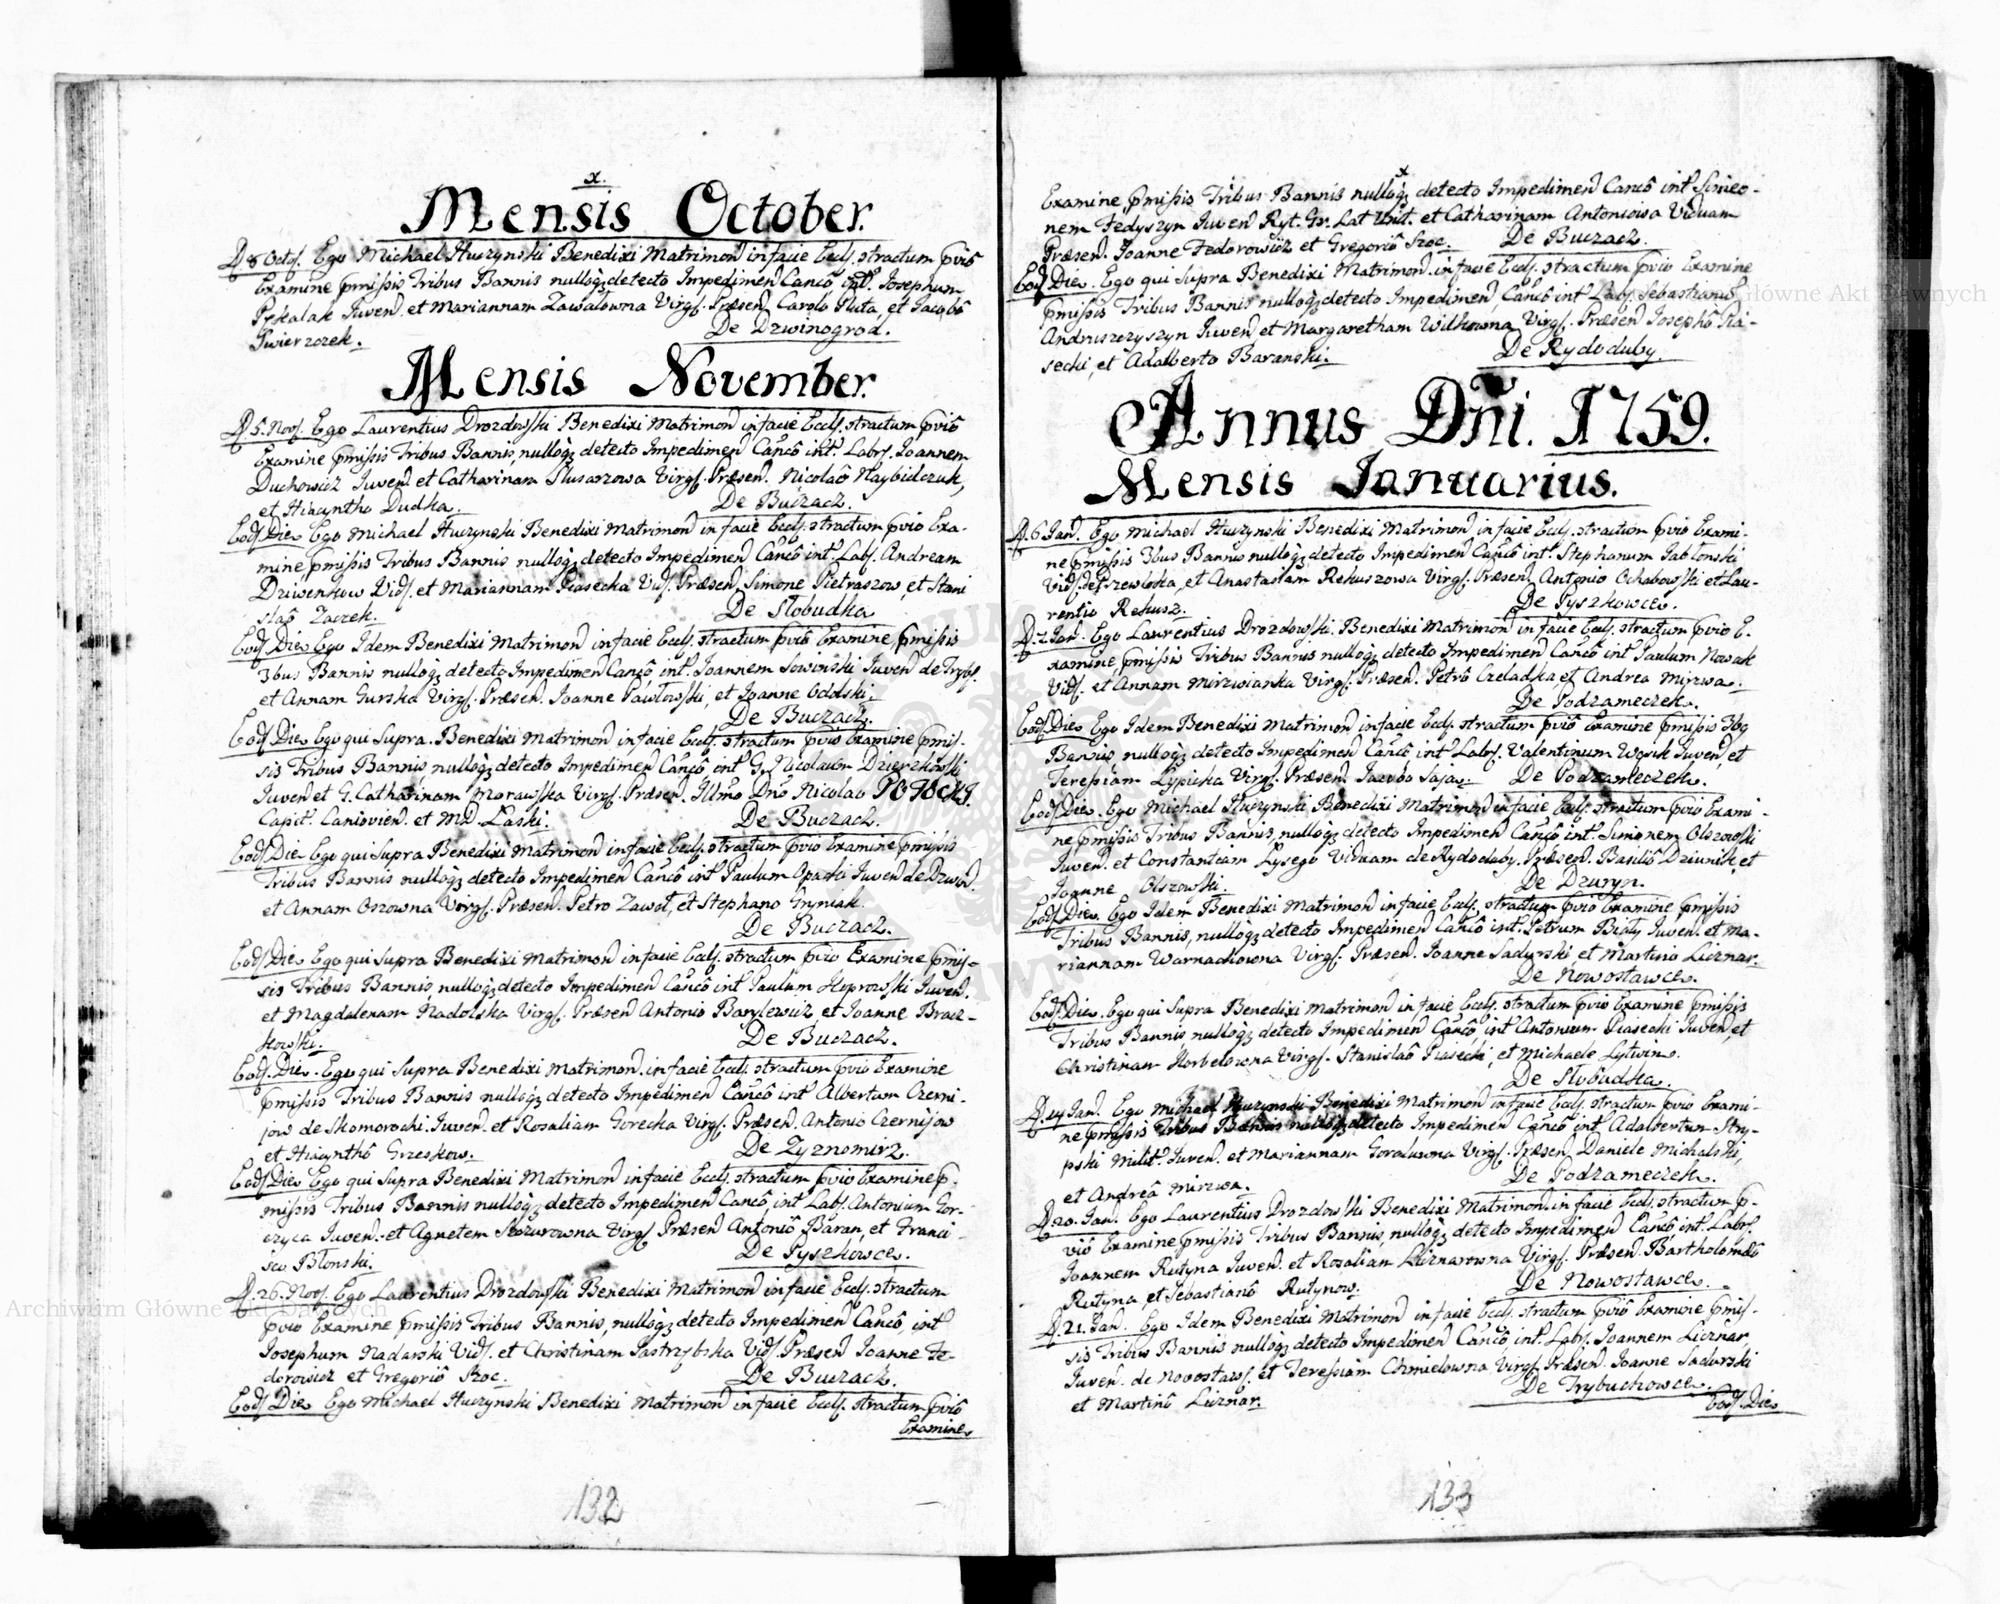 x.
Mensis October.
D. 8 Octoƒ. Ego Michael Huczynski Benedixi Matrimon in facie Eccƒ. stractum pviô
Examine pmissis Tribus Bannis nulloq₃ detecto Impedimen Cancô, int. Josephum
Pyskalak Juven. et Mariannam Zawalowna Virgƒ. Præsen. Carolo Pluta, et Jacobô
Swierzczek. De Dzwinogrod.
Mensis November.
D. 5. Novƒ. Ego Laurentius Drozdowski Benedixi Matrimon in facie Eccƒ. stractum pviô
Examine pmissis Tribus Bannis, nulloq₃ detecto Impedimen Cancô int. Labƒ. Joannem
Duchowicz Juven et Catharinam Slusarzowa Virgƒ. Præsen. Nicolaô Haybidczuk,
et Hiacyntho Dudka. De Buczacz.
Eodƒ Die Ego Michael Huczynski Benedixi Matrimon in facie Eccƒ. stractum pvio Exa-
mine, pmissis Tribus Bannis nulloq₃ detecto Impedimen Cancô int. Labƒ. Andream
Dziwenkow Vidƒ. et Mariannam Piasecka Vidƒ. Præsen. Simone Pietraszow, et Stani
slaô Zaczek. De Słobudka
Eodƒ Die Ego Idem Benedixi Matrimon in facie Eccƒ. stractum pviô Examine, pmissis
3bus Bannis nulloq₃ detecto Impedimen Cancô, int. Joannem Sowinski Juven de Trybƒ.
et Annam Gurska Virgƒ. Præsen. Joanne Pawłowski, et Joanne Odolski.
De Buczacz.
Eodƒ Die Ego qui Supra. Benedixi Matrimon in facie Eccƒ. stractum pvio Examine pmis-
sis Tribus Bannis, nulloq₃ detecto Impedimen Cancô, int G. Nicolaum Dzierzkowski
Juven et G. Catharinam Morawska Virgƒ. Præsen. Illmo Dno Nicolao POTOCKI.
Capit. Canioviên. et MD. Laski. De Buczacz.
Eodƒ Die Ego qui Supra Benedixi Matrimon in facie Eccƒ. stractum pvio Examine pmissis
Tribus Bannis nulloq₃ detecto Impedimen Cancô int Paulum Opacki Juven de Dzwin.
et Annam Oszowna Virgƒ. Præsen. Petro Zawoł, et Stephano Gryniak.
De Buczacz.
Eodƒ Die Ego qui Supra Benedixi Matrimon in facie Eccƒ. stractum pvio Examine pmis-
sis Tribus Bannis, nulloq₃ detecto Impedimen Cancô int Paulum Heprowski Juven.
et Magdalenam Nadolska Virgƒ. Præsen Antonio Barylewicz, et Joanne Bracz-
kowski. De Buczacz.
Eodƒ. Die. Ego qui Supra Benedixi Matrimon. in facie Eccƒ. stractum pvio Examine
pmissis Tribus Bannis nulloq₃ detecto Impedimen Cancô int Albertum Czerni-
jow de Skomorochi. Juven. et Rosaliam Gorecka Virgƒ. Præsen. Antonio Czernijow
et Hiacynthô Grzeskow. De Zyznomirz.
Eodƒ Die Ego qui Supra Benedixi Matrimon in facie Eccƒ. stractum pvio Examine p-
missis Tribus Bannis nulloq₃ detecto Impedimen Cancô, int Labƒ. Antonium Gor-
czyca Juven. et Agnetem Skozurowna Virgƒ Præsen Antoniô Baran, et Franci-
sco Błonski. De Pyszkowce.
D. 26. Novƒ. Ego Laurentius Drozdowski Benedixi Matrimon in facie Eccƒ. stractum
pvio Examine pmissis Tribus Bannis, nulloq₃ detecto Impedimen Cancô, int
Josephum Nadarski Vidƒ. et Christinam Jastrzybska Vidƒ. Præsen Joanne Fe-
dorowicz et Gregoriô Szoc. De Buczacz.
Eodƒ Die Ego Michael Huczynski Benedixi Matrimon in facie Eccƒ. stractum pviô
Examine
132
x
Examine pmissis Tribus Bannis nulloq₃ detecto Impedimen Cancô int Simeo-
nem Fedyszyn Juven Ryt. Gr. Lat Unit. et Catharinam Antoniowa Viduam
Præsen. Joanne Fedorowicz et Gregoriô Szoc. De Buczacz.
Eodƒ Die. Ego qui Supra Benedixi Matrimon. in facie Eccƒ. stractum pvio Examine
pmissis Tribus Bannis nulloq₃ detecto Impedimen, Cancô int Labƒ. Sebastianum
Andruszczyszyn Juven et Margaretham Wilkowna Virgƒ. Præsen Josephô Pia-
secki, et Adalberto Baranski. De Rydoduby.
Annus Dni. 1759.
Mensis Januarius.
D. 6 Jan. Ego Michael Huczynski Benedixi Matrimon in facie Eccƒ. stractum pvio Exami-
ne pmissis 3bus Bannis nulloq₃ detecto Impedimen Cancô int. Stephanum Jablonski
Vidƒ. de Przewłoka, et Anastasiam Rekuszowa Virgƒ. Præsen Antonio Ochabowski et Lau-
rentio Rekusz. De Pyszkowce.
D. 7. Jan. Ego Laurentius Drozdowski. Benedixi Matrimon in facie Eccƒ. stractum pvio E-
xamine, pmissis Tribus Bannis nulloq₃ detecto Impedimen Cancô int Paulum Nowak
Vidƒ. et Annam Mirzwianka Virgƒ. Præsen. Petrô Czeladka, et Andrea Mirzwa.
De Podzameczek.
Eodƒ Die Ego Idem Benedixi Matrimon in facie Eccƒ. stractum pviô Examine pmissis 3bg
Bannis, nulloq₃ detecto Impedimen Cancô int Labƒ. Valentinum Wąsik Juven, et
Teressiam Lypicka Virgƒ. Præsen. Jacobo Saja. De Podzameczek.
Eodƒ Die. Ego Michael Huczynski Benedixi Matrimon in facie Eccƒ. stractum pvio Exami-
ne pmissis Tribus Bannis, nulloq₃ detecto Impedimen Cancô int. Simonem Olszowski
Juven. et Constantiam Lysego Viduam de Rydoduby. Præsen. Basiliô Dziunik, et
Joanne Olszowski. De Dzuryn.
Eodƒ Die. Ego Idem Benedixi Matrimon in facie Eccƒ. stractum pvio Examine pmissis
Tribus Bannis, nulloq₃ detecto Impedimen Cancô int. Petrum Biały Juven. et Ma-
riannam Warnachowna Virgƒ. Præsen. Joanne Sadurski et Martino Licznar.
De Nowostawce.
Eodƒ. Die. Ego qui Supra Benedixi Matrimon in facie Eccƒ. stractum pvio Examine pmissis
Tribus Bannis, nulloq₃ detecto Impedimen Cancô, int Antonium Piasecki Juven, et
Christinam Horbelowna Virgƒ. Stanislaô Piasecki, et Michaele Lytwin.
De Słobudka.
D. 14 Jan. Ego Michael Huczynski Benedixi Matrimon in facie Eccƒ. stractum pvio Exami-
ne pmissis Tribus Bannis nulloq₃ detecto Impedimen Cancô int Adalbertum Stry-
pski Milit. Juven. et Mariannam Goraluwna Virgƒ. Præsen Daniele Michalski,
et Andreâ Mirzwa. De Podzameczek.
D. 20. Jan. Ego Laurentius Drozdowski Benedixi Matrimon. in facie Eccƒ. stractum p-
viô Examine pmissis Tribus Bannis, nulloq₃ detecto Impedimen Cancô, int. Labƒ
Joannem Rutyna Juven. et Rosaliam Licznarowna Virgƒ. Præsen. Bartholomæô
Rutyna, et Sebastianô Rutynow. De Nowostawce.
D. 21. Jan. Ego Idem Benedixi Matrimon in facie Eccƒ. stractum pviô Examine pmis-
sis Tribus Bannis nulloq₃ detecto Impedimen Cancô, int. Labƒ. Joannem Licznar
Juven. de Novostawƒ. et Teressiam Chmielowna Virgƒ. Præsen. Joanne Sadurski
et Martinô Licznar. De Trybuchowce.
Eodƒ. Die
133
Archiwum Główne Akt Dawnych